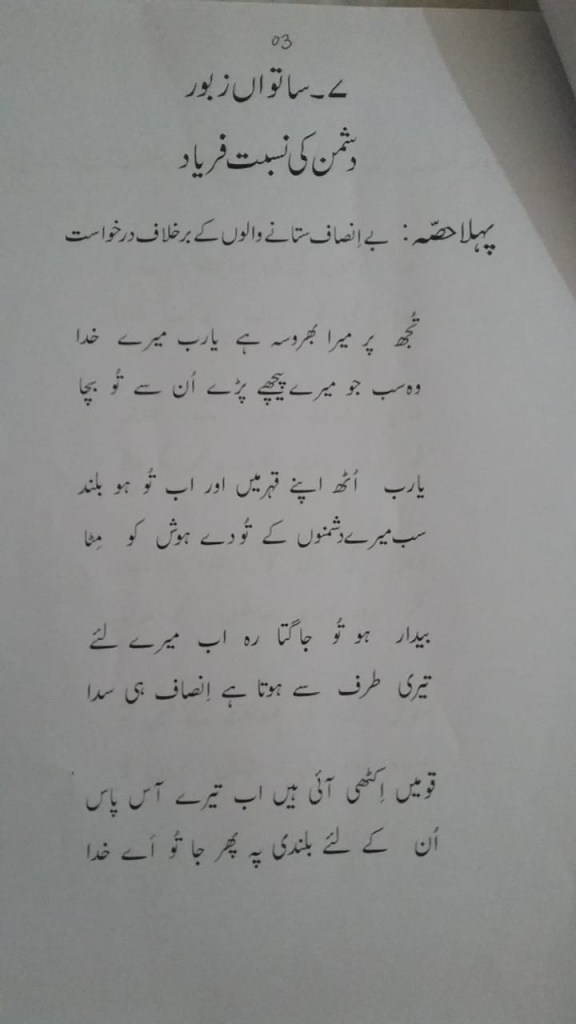 03
۷۔ساتواں زبور
دشمن کی نسبت فریاد
پہلا حصّہ: بے اِنصاف ستانے والوں کے برخلاف درخواست
تُجھ پر میرا بھروسہ ہے یارب میرے خدا
وہ سب جو میرے پیچھے پڑے اُن سے تُو بچا
یارب اُٹھ اپنے قہر میں اور اب تُو ہو بلند
سب میرے دشمنوں کے تُو دے ہوش کو مِٹا
بیدار ہو تُو جاگتا رہ اب میرے لئے
تیری طرف سے ہوتا ہے اِنصاف ہی سدا
قومیں اِکٹھی آئی ہیں اب تیرے آس پاس
اُن کے لئے بلندی پہ پھر جا تُو اَے خدا